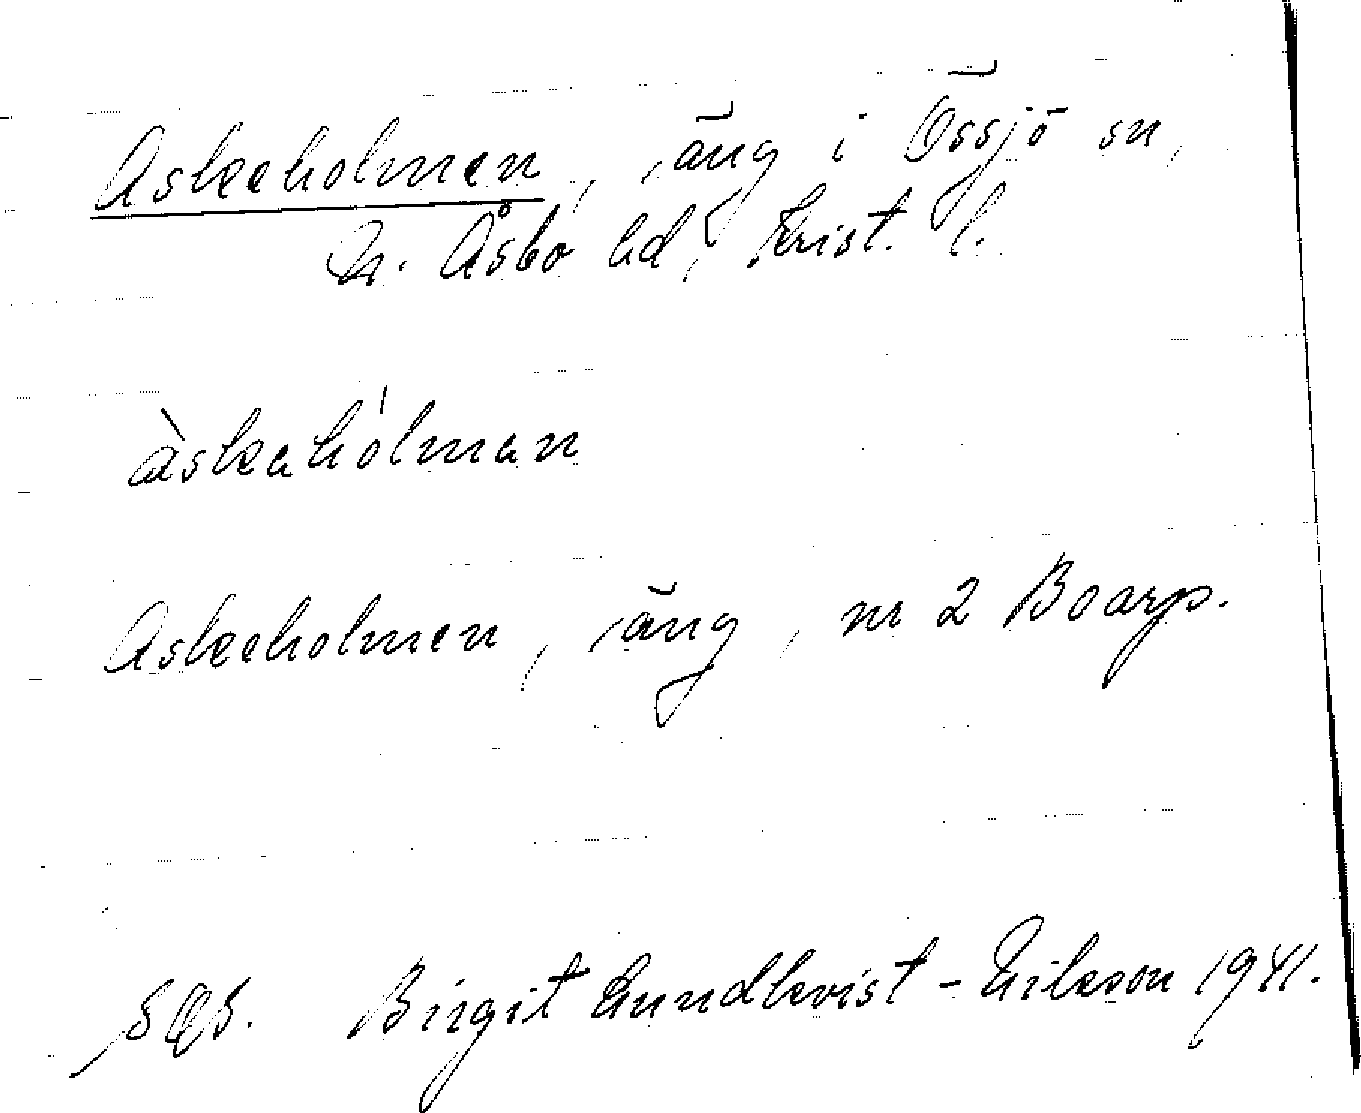 Askeholmen, äng i Össjö sn,
N. Åsbo hd, Krist. l.
àskahólman
Askeholmen, äng, nr 2 Boarp.
Birgit Lundkvist - Nilsson 1941.